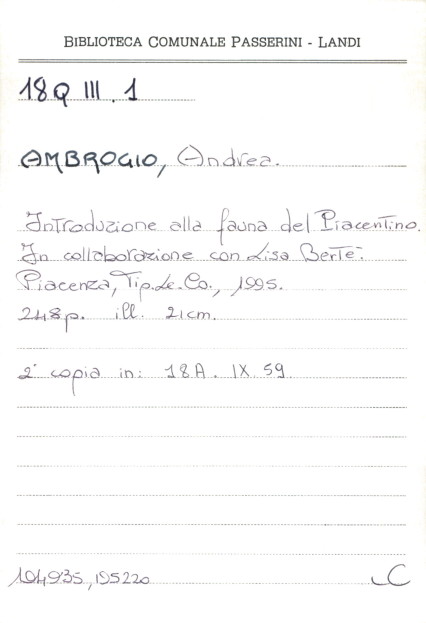 BIBLIOTECA COMUNALE PASSERINI - LANDI
18Q III . 1
AMBROGIO, Andrea.
Introduzione alla fauna del Piacentino.
In collaborazione con Lisa Bertè.
Piacenza, Tip.Le.Co., 1995.
248p. ill. 21cm.
2ª copia in: 18A . IX 59
194935, 195220 C